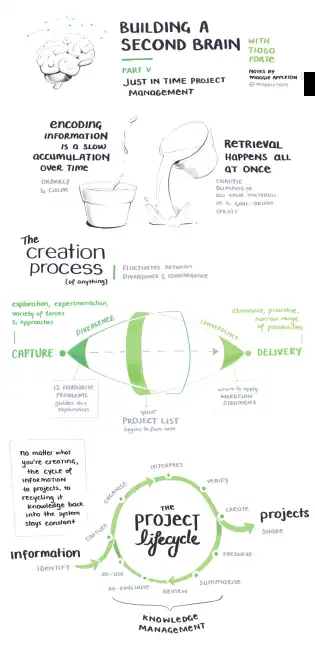 BUILDING A
SECOND BRAIN
WITH
TIAGO
FORTE
PART V
JUST IN TIME PROJECT
MANAGEMENT
NOTES BY
MAGGIE APPLETON
ENCODING
INFORMATION
IS A SLOW
ACCUMULATION
OVER TIME
ORDERLY
& CALM
RETRIEVAL
HAPPENS ALL
AT ONCE
CHAOTIC
DUMPING OF
ALL YOUR MATERIAL
IN A GOAL-DRIVEN
SPRINT
The
creation
process
(of anything)
FLUCTUATES BETWEEN
DIVERGENCE & CONVERGENCE
exploration, experimentation,
variety of lenses
& approaches
eliminate, prioritise,
narrow range
of possibilities
DIVERGENCE
CONVERGENCE
CAPTURE
DELIVERY
12 FAVOURITE
PROBLEMS
guides this
exploration
your
PROJECT LIST
begins to form here
where to apply
WORKFLOW
STRATEGIES
no matter what
you're creating,
the cycle of
information
to projects, to
recycling it
knowledge back
into the system
stays constant
THE
PROJECT
lifecycle
INTERPRET
VERIFY
ORGANISE
CREATE
CAPTURE
projects
SHARE
information
IDENTIFY
PRESERVE
RE-USE
SUMMARISE
RE-EVALUATE
REVIEW
KNOWLEDGE
MANAGEMENT